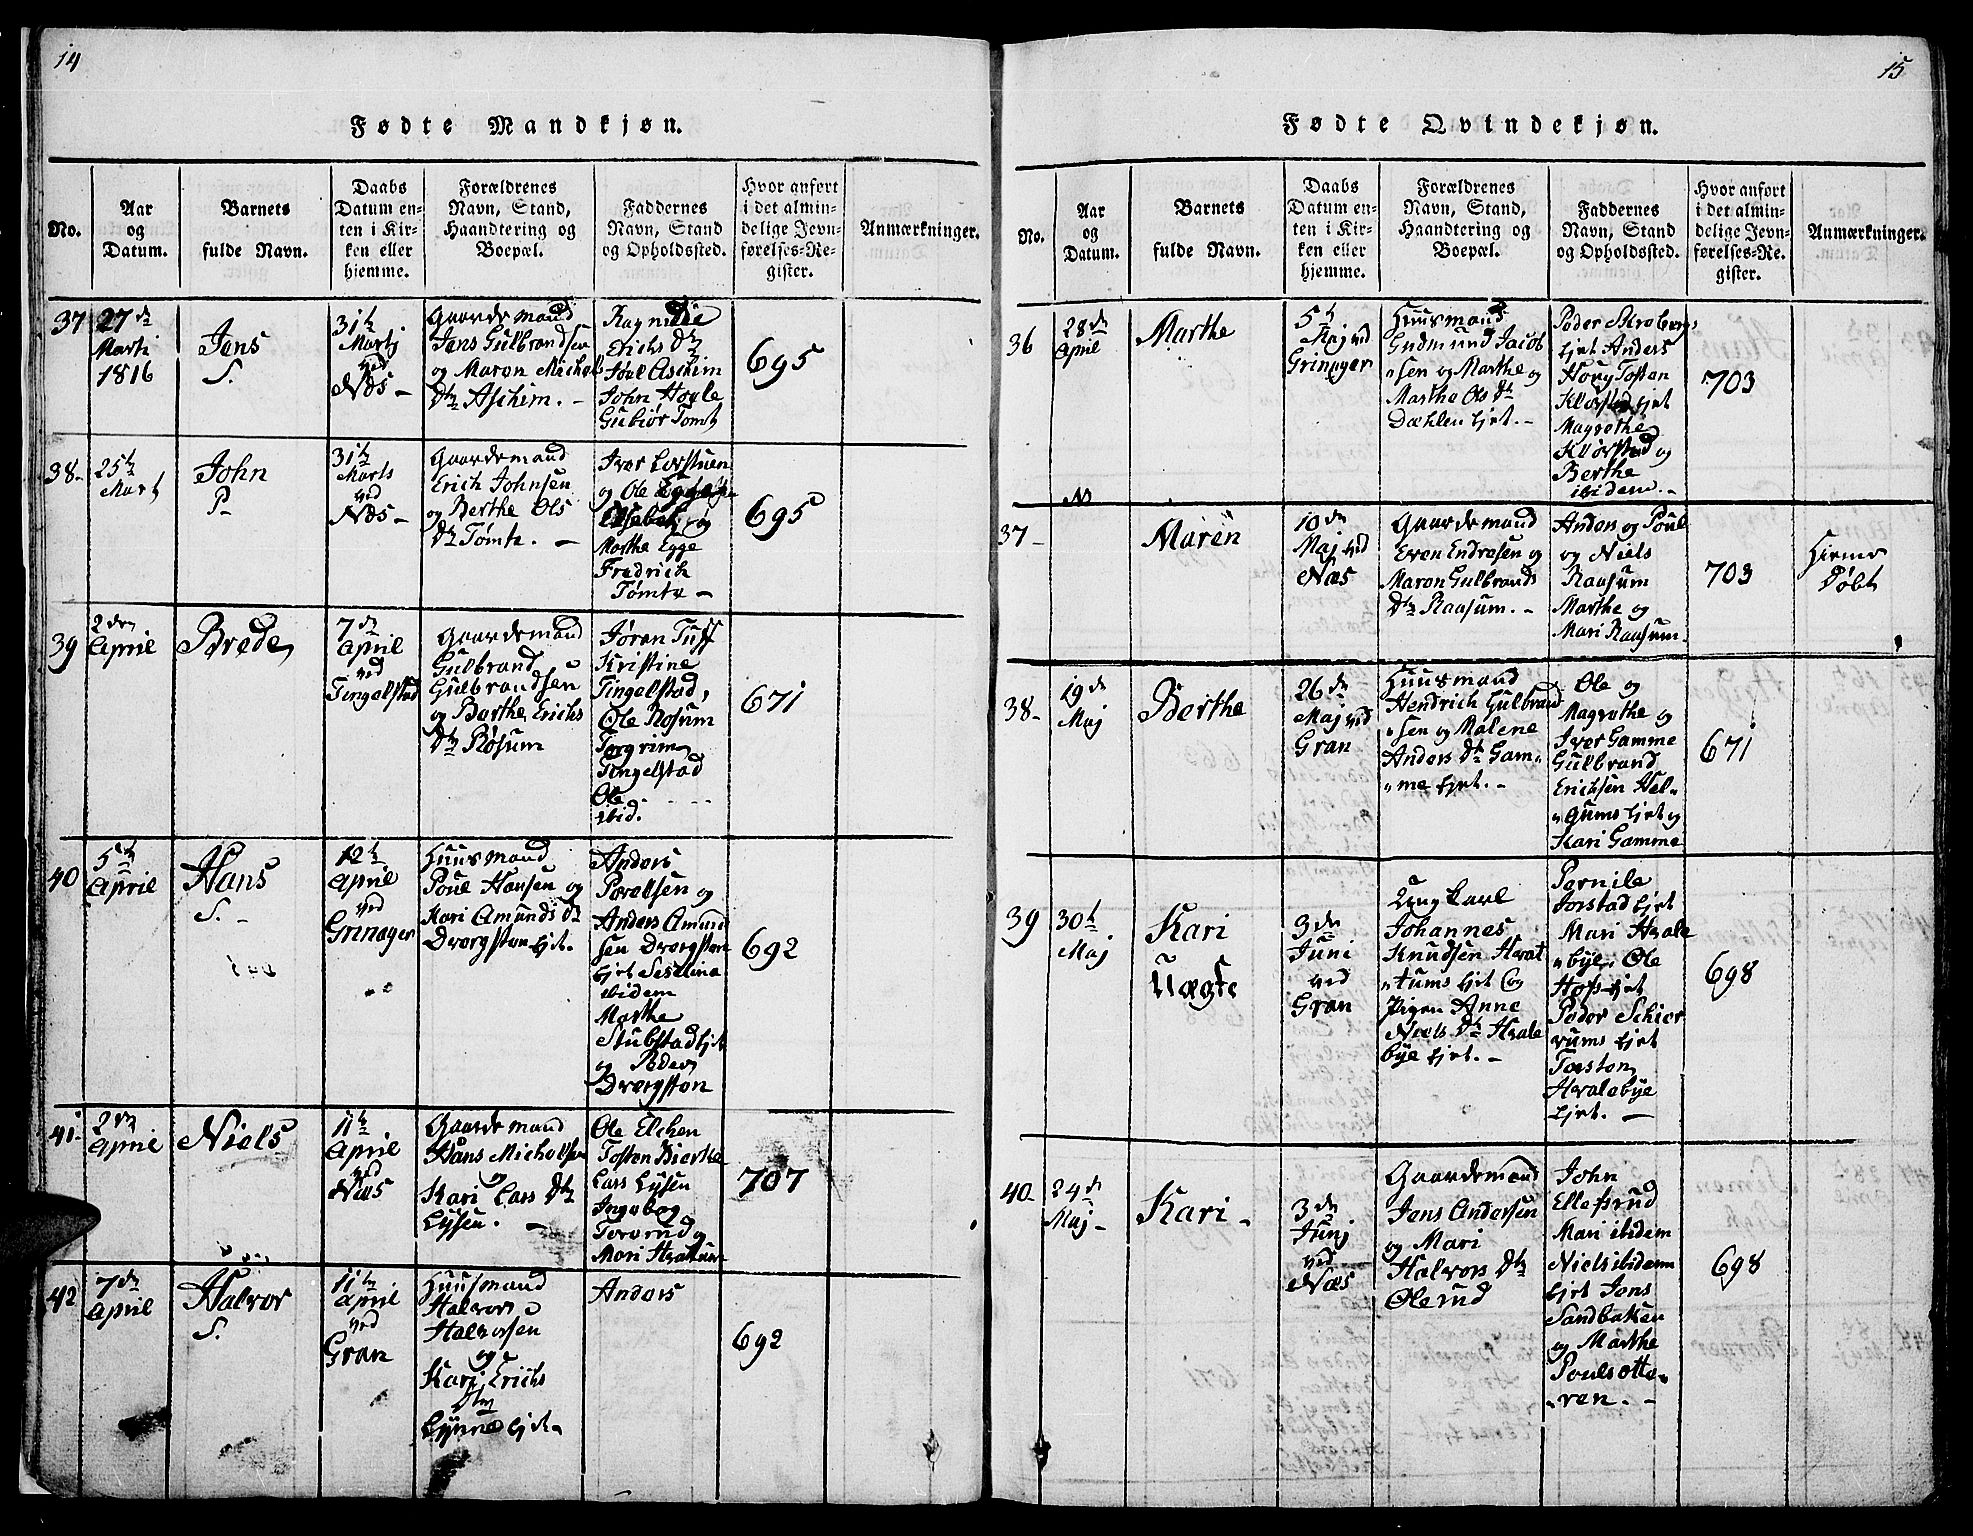 14
Fødte Mandkjøn.
No.
Aar
og
Datum.
Barnets
fulde Navn.
Daabs
Datum en-
ten i Kir-
ken eller
hjemme.
Forældrenes
Navn, Stand,
Haandtering og
Boepæl.
Faddernes
Navn, Stand
og Opholdssted.
Hvor anført
i det almin-
delige Jevn-
førelses-Re-
gister.
Anmærkninger.
37
27 de
Marti
1816
Jens
S.
31te
Martj
ved
Næs -
Gaardemand
Jens Gulbrandsen
og Maren Michels
Dtr Aschim. -
Ragnilde
Erichs Dtr
Joul Aschim
John Hogle
Gubiør Tomt
695
38-
25te
Mart
John
P-
31te
Marts
ved
Næs -
Gaardemand
Erich Johnsen
og Berthe Ols
Dtr Tømte. -
Iver Lorstuen
og Ole
og
Marthe Egge
Fredrich
Tømte -
695
39
2den
April
Brede
7de
April
ved
Tingelstad
Gaardemand
Gulbrand
Gulbrandsen
og Berthe Erichs
Dtr Røsum
Jøran Tuff
Kristine
Tingelstad,
Ole Rosum
Torgrim
Tingelstad
Ole
ibid.
671
40
5te
April
Hans
S. -
12te
April
ved
Grinager
Huusmand
Poul Hansen og
Kari Amunds Dtr
Dvergsten Ejet.
Anders
Povelsen og
Anders Amund
sen Dvergsten
Ejet Seselina
ibidem
Marthe
Stubstad Ejet
og Peder
Dvergsten
692
41-
2den
April
Niels
11te
April
ved
Næs
Gaardemand
Hans Michelsen
og
Kari Lars Dtr
Lysen. -
Ole Elchen
Tosten Bierke
Lars Lysen
Ingebog
Tovrud og
Mari
707
42
7de
April
Halvor
S.
11te
April
ved
Gran
Huusmand
Halvor
Halvorsen
og
Kari Erichs
Dtr
Lynne Ejet-
Anders
692
15
Fødte Qvindekjøn.
No.
Aar
og
Datum.
Barnets
fulde Navn.
Daabs
Datum en-
ten i Kir-
ken eller
hjemme.
Forældrenes
Navn, Stand,
Haandtering og
Boepæl.
Faddernes
Navn, Stand
og Opholdssted.
Hvor anført
i det almin-
delige Jevn-
førelses-Re-
gister.
Anmærkninger.
36
28de
April
Marthe
5te
Maj ved
Grinager
Huusmand
Gudmund Jacob
"sen og Marthe og
Marthe Ols Dtr
Dæhlen Ejet. -
Peder
Ejet Anders
Houg Tosten
Klørstad Ejet
Magrethe
Klørstad og
Berthe
ibidem. -
703
37-
Maren
10de
Maj ved
Næs
Gaardemand
Even Endresen og
Maren Gulbrands
Dtr Raasum. -
Anders og Poul
og Niels
Raasum
Marthe og
Mari Raasum.
703
Hieme
Døbt
38-
19de
Maj
Berthe
26de
Maj ved
Gran
Huusmand
Hendrich Gulbrand
"sen og Malene
Anders Dtr Gam-
"me Ejet. -
Ole og
Magrethe og
Iver Gamme
Gulbrand
Erichsen Hel-
"gums Ejet og
Kari Gamme
671
39
30te
Maj
Kari
Uægte
3de
Juni
ved
Gran
Ungkarl
Johannes
Knudsen Hvat
"tums Ejet og
Pigen Anne
Niels Dtr Hvale
bye Ejet. -
Pernile
Jorstad Ejet
Mari Hvale
"bye Ole
Hofs Ejet
Peder Schier
vums Ejet
Torsten
Hvalebye
Ejet. -
698
40-
24de
Maj-
Kari-
3de
Junj
ved
Næs
Gaardemand
Jens Andersen
og Mari
Halvors Dtr
Olerud
John
Ellefsrud
Mari ibidem
Niels ibidem
Ejet Jens
Sandbakken
og Marthe
Poulsotte-
"ren. -
698